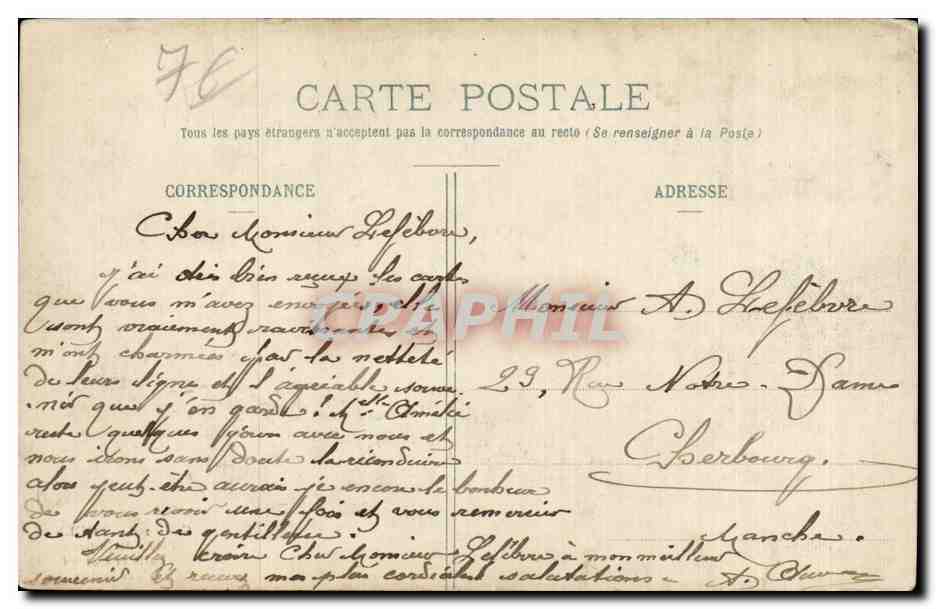 76
CARTE POSTALE
Tous les pays étrangers n'acceptent pas la correspondance au recto (Se renseigner à la Poste)
CORRESPONDANCE
Cher Monsieur Lefèbvre,
j'ai très bien reçu les cartes
que vous m'avez envoyées, elles
sont vraiment ravissantes et
m'ont charmées par la netteté
de leurs ligne et l'agréable souve
-nir que j'en garde! Melle Amélie
reste quelques jours avec nous et
nous irons sans doute la reconduire
alors peut-être aurais-je encore le bonheur
de vous revoir une fois et vous remercier
de tant de gentillesse.
Veuillez croire Cher Monsieur Lefèbvre à mon meilleur
souvenir et recevez mes plus cordiales salutations. A.
ADRESSE
Monsieur A. Lefèbvre
29, Rue Notre-Dame
Cherbourg.
Manche.
CPAPHIL